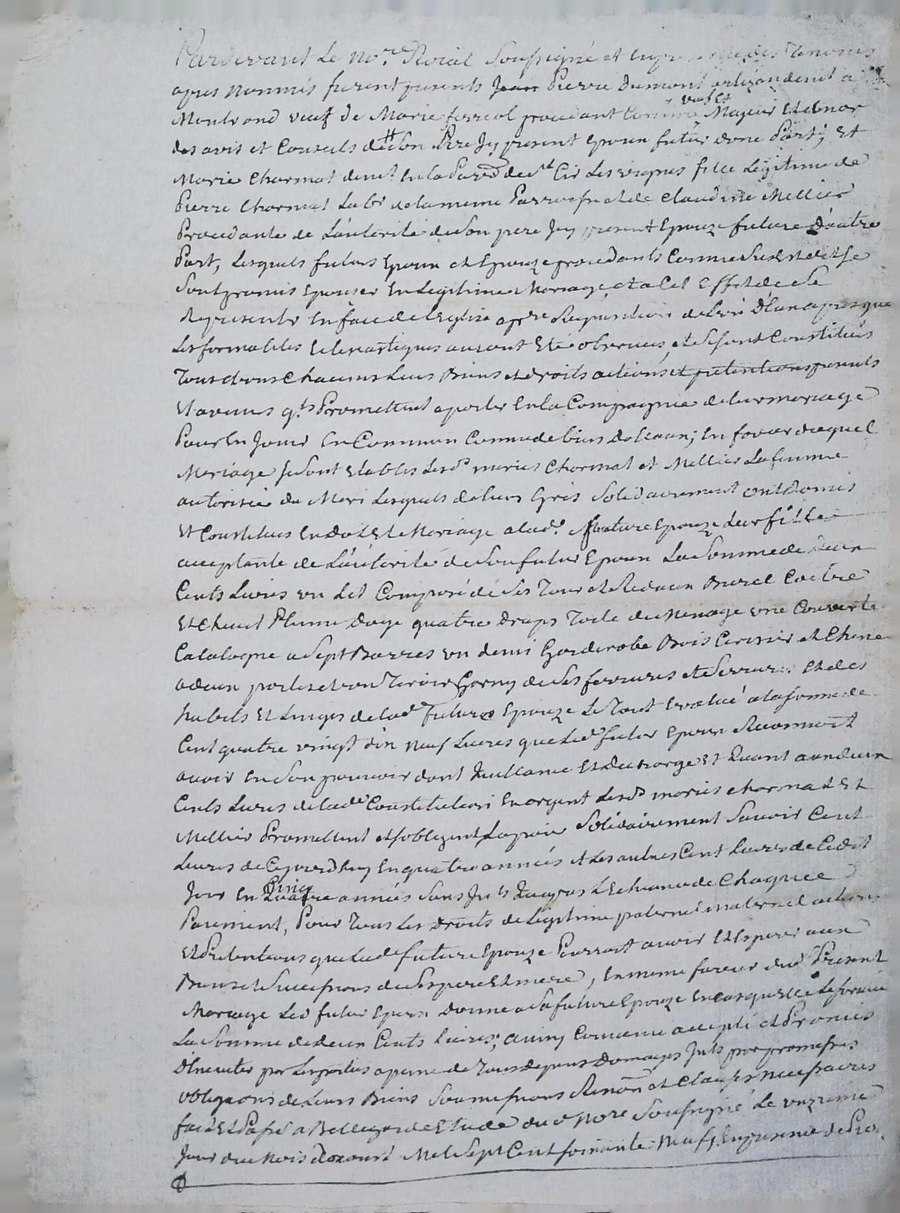 Pardevant Le no.re Roial Soussigné et en presence des Temoins
apres Nommés furent presents Jean Pierre Dumont demt a
Montrond veuf De Marie ferreol procedant Comme Majeur Et de nor
des avis et Conseils de Son Pere Icy present Epoux futur d'une Part; Et
Marie Charmat demt. En la Parsse de st. Cir Les vignes fille Legitime de
Pierre Charmat Labr de la meme Parroisse et de Claudine Mellier
Procedante de L'autorité de Son pere Icy present Epouze future D'autre
Part, Lesquels futurs Epoux et Epouze procedants Comme Sus Est dit Se
Sont promis Epouser En Legitime Mariage, et a Cet Effet de se
Representer En face de L'eglise apres Requisition de L'un D'eux apres que
Les formalités Eclesiastiques auront Eté observées, et se sont Constitués
Tous deux Chacuns Leurs Biens et droits actions et pretentions presents
Et avenirs qls Promettent aporter En la Compagnie de leur mariage
Pour En Jouir En Commun Comme de biens Dotaux; En faveur duquel
Mariage Se sont Etablis Lesds. mariés Charmat et Mellier La femme
autorisée du Mari Lesquels de leurs Grés Solidairement ont Donné
Et Constitué En Dot Et Mariage a lade. future Epouze Leur fille
acceptante de L'autorité de Son futur Epoux La Somme de Deux
Cents Livres un Lit Composé de Ses Tour et Rideaux Burel Coetre
Et Chevet Plume D'oye quatre Draps Toile de Menage une Couverte
Catalogne a Sept Barres un demi Garderobe Bois Cerisier et Chene
a deux portes et un Tiroir Garny de Ses ferrures et Serrure, Et des
habits Et Linges de lade future Epouze Le Tout Evalué a la somme de
Cent quatre vingt dix neuf Livres que Led. futur Epoux Reconnoit
avoir En Son pouvoir dont Quittance Et Decharge Et Quant aux deux
Cents Livres de lade Constitution En argent Lesds mariés Charmat Et
Mellier Promettent et s'obligent La payer Solidairement Savoir Cent
Livres de Ce jourd'huy En quatre années et Les autres Cent Livres de Ce dit
Jour En Cinq années Sans Jnts Qu'apres L'Echeance de Chaque
Paiement, Pour Tous Les Droits de Legitime paternel maternel actions
Et Pretentions que Lade future Epouze Pourroit avoir Et Esperer aux
Biens et Successions de Ses pere Et mere, En meme faveur dud Present
Mariage Led futur Epoux Donne a Sa future Epouze En Cas qu'elle Le Survive
La Somme de deux Cents Livres; ainsy Convenu accepté et Promis
D'executer par Les parties a peine de Tous Depens Domages Jnts par promesses
obligaons de Leurs Biens Soumissions Renonon et Clauses Necessaires
fait Et Passé a Bellegarde Etude du d Nore Soussigné Le onzieme
Jour du Mois D'aoust Mil Sept Cent Soixante Neuf, En presence de